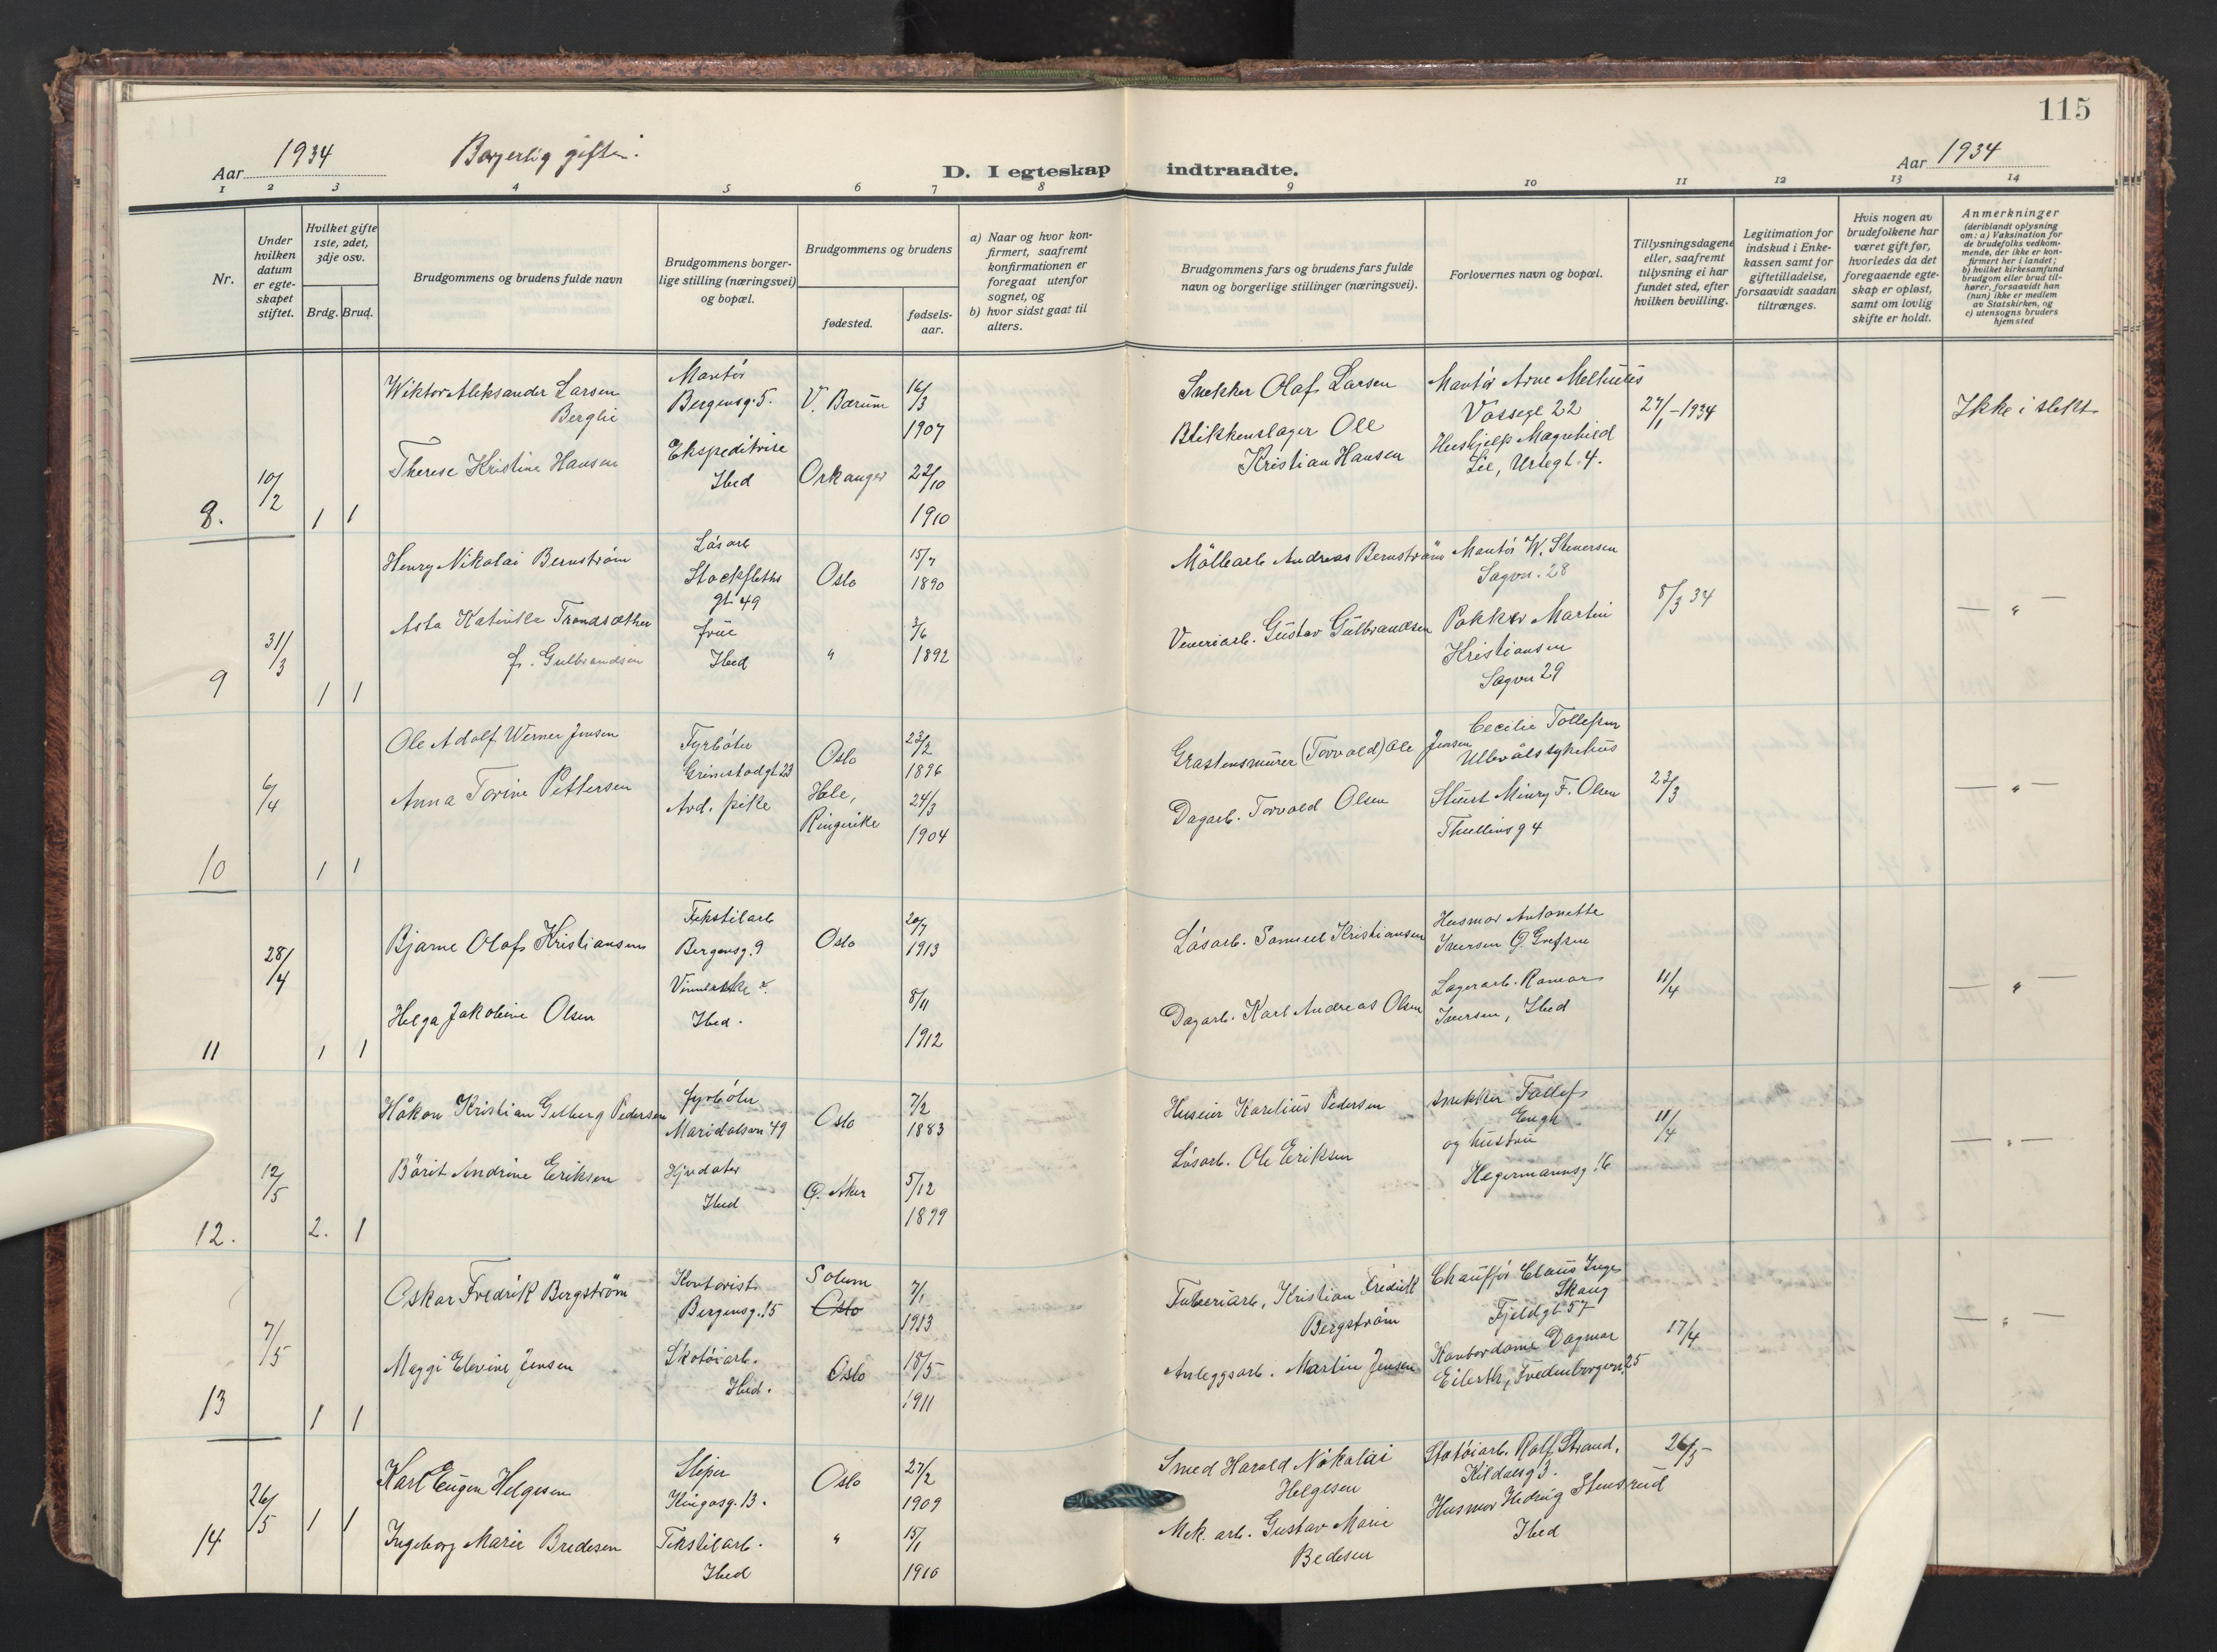 115
Aar 1934
Borgerlig gifte.
D. I egteskap indtraadte.
Aar 1934
1 2 3 4 5 6 7 8 9 10 11 12 13 14
Nr.
Under
hvilken
datum
er egte-
skapet
stiftet.
Hvilket gifte
1ste, 2det,
3dje osv.
Brdg. Brud.
Brudgommens og brudens fulde navn
Brudgommens borger-
lige stilling (næringsvei)
og bopæl.
Brudgommens og brudens
fødested.
fødsels-
aar.
a) Naar og hvor kon-
firmert, saafremt
konfirmationen er
foregaat utenfor
sognet, og
b) hvor sidst gaat til
alters.
Brudgommens fars og brudens fars fulde
navn og borgerlige stillinger (næringsvei).
Forlovernes navn og bopæl.
Tillysningsdagene
eller, saafremt
tillysning ei har
fundet sted, efter
hvilken bevilling.
Legitimation for
indskud i Enke-
kassen samt for
giftetilladelse,
forsaavidt saadan
tiltrænges.
Hvis nogen av
brudefolkene har
været gift før,
hvorledes da det
foregaaende egte-
skap er opløst,
samt om lovlig
skifte er holdt.
Anmerkninger
(deriblandt oplysning
om: a) Vaksination for
de brudefolks vedkom-
mende, der ikke er kon-
firmert her i landet;
b) hvilket kirkesamfund
brudgom eller brud til-
hører, forsaavidt han
(hun) ikke er medlem
av Statskirken, og
c) utensogns bruders
hjemsted
8.
10/2
1 1
Wiktor Aleksander Larsen
Berglie
Therese Kristine Hansen
Montör
Bergensg. 5.
Ekspeditrise
Ibed
V. Bærum
Orkanger
16/3
1907
22/10
1910
Snekker Olaf Larsen
Blikkenslager Ole
Kristian Hansen
Montör Arne Melhuus
Vossegt 22
Hushjelp Magnhild
Lie, Urtegt. 4.
27/1-1934
Ikke i slekt
9
31/3
1 1
Henry Nikolai Bernström
Asta Katinka Trondsæther
f. Gulbrandsen
Lösarb
Stockfleths
gt. 49
frue
Ibed
Oslo
"
15/7
1890
3/6
1892
Möllearb Andreas Bernström
Veveriarb. Gustav Gulbrandsen
Montör W. Stenersen
Sagvn. 28
Pakker Martin
Kristiansen
Sagvn 29
8/3 34
— " —
10
6/4
1 1
Ole Adolf Werner Jensen
Anna Torine Pettersen
Fyrböter
Grimstadgt. 23
Arb. pike
Oslo
Hole,
Ringerike
23/2
1896
24/3
1904
Grastensmurer (Torvald) Ole Jensen
Dagarb. Torvald Olsen
Cecilie Tollefsen
Ullevål sykehus
Stuert Minry F. Olsen
Thullins g 4
23/3
— " —
11
28/4
1 1
Bjarne Olaf Kristiansen
Helga Jakobine Olsen
Tekstilarb
Bergensg. 9
Ibed.
Oslo
20/7
1913
8/11
1912
Lösarb. Samuel Kristiansen
Dagarb. Karl Andreas Olsen
Husmor Antonette
Iversen Ö. Grefsen
Lagerarb. Ramar
Iversen, Ibed
11/4
— " —
12.
12/5
2. 1
Håkon Kristian Gilberg Pedersen
Börit Andrine Eriksen
fyrböter
Maridalsvn 49
Ibed
Oslo
Ö. Aker
7/2
1883
5/12
1899
Huseier Karelius Pedersen
Lösarb. Ole Eriksen
snekker Tollef
Engh
og hustru
Hegermannsg. 16
11/4
— " —
13
7/5
1 1
Oskar Fredrik Bergström
Maggi Elevine Jensen
Kontorist
Bergensg. 15
Skotöiarb.
Ibed.
Solum
Oslo
Oslo
7/1
1913
18/5
1911
Kristian Fredrik
Bergström
Anleggsarb. Martin Jensen
Chaufför Claus Inge
Skaug
Fjeldgt. 57
Kontordame Dagmar
Eilerth, Fredensborgvn. 25
17/4
— " —
14
26/5
1 1
Karl Eugen Helgesen
Ingeborg Marie Bredesen
Sliper
Kingosg. 13.
Tekstilarb.
Ibed
Oslo
"
27/2
1909
15/1
1910
Smed Harald Nikolai
Helgesen
Mek. arb. Gustav Marie
Bedesen
Skotöiarb. Rolf Strand,
Kildalsg 3.
Husmor Hedvig Stensrud
Ibed
26/3